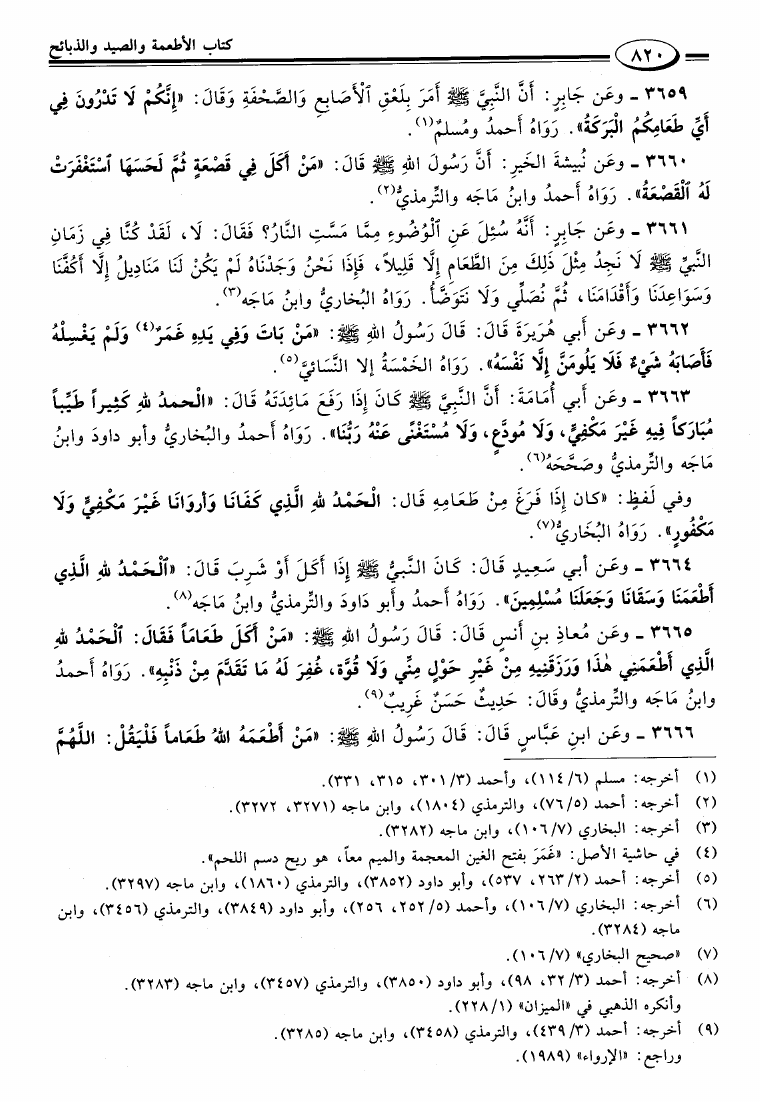 كتاب الأطعمة والصيد والذبائح
٨٢٠
٣٦٥٩ ـ وعَن جَابِرٍ: أَنَّ النَّبِيَّ ﷺ أَمَرَ بِلَعْقِ الْأَصَابِعِ وَالصَّحْفَةِ وَقَالَ: «إِنَّكُمْ لَا تَدْرُونَ فِي
أَيِّ طَعَامِكُمُ الْبَرَكَةُ». رَوَاهُ أَحمدُ ومُسلمٌ(١).
٣٦٦٠ ـ وعَن نُبيشةَ الخَيرِ: أَنَّ رَسُولَ اللهِ ﷺ قَالَ: «مَنْ أَكَلَ فِي قَصْعَةٍ ثُمَّ لَحَسَهَا اسْتَغْفَرَتْ
لَهُ الْقَصْعَةُ». رَوَاهُ أَحمدُ وابنُ مَاجَه والتِّرمذيُّ(٢).
٣٦٦١ ـ وعَن جَابِرٍ: أَنَّهُ سُئِلَ عَنِ الْوُضُوءِ مِمَّا مَسَّتِ النَّارُ؟ فَقَالَ: لَا، لَقَدْ كُنَّا فِي زَمَانِ
النَّبِيِّ ﷺ لَا نَجِدُ مِثْلَ ذَلِكَ مِنَ الطَّعَامِ إِلَّا قَلِيلاً، فَإِذَا نَحْنُ وَجَدْنَاهُ لَمْ يَكُنْ لَنَا مَنَادِيلُ إِلَّا أَكُفَّنَا
وَسَوَاعِدَنَا وَأَقْدَامَنَا، ثُمَّ نُصَلِّي وَلَا نَتَوَضَّأُ. رَوَاهُ البُخاريُّ وابنُ مَاجَه(٣).
٣٦٦٢ ـ وعَن أَبي هُرَيرَةَ قَالَ: قَالَ رَسُولُ اللهِ ﷺ: «مَنْ بَاتَ وَفِي يَدِهِ غَمَرٌ(٤) وَلَمْ يَغْسِلْهُ
فَأَصَابَهُ شَيْءٌ فَلَا يَلُومَنَّ إِلَّا نَفْسَهُ». رَوَاهُ الخَمْسَةُ إلا النَّسَائيَّ(٥).
٣٦٦٣ ـ وعَن أَبي أُمَامَةَ: أَنَّ النَّبِيَّ ﷺ كَانَ إِذَا رَفَعَ مَائِدَتَهُ قَالَ: «الْحمدُ لله كَثِيراً طَيِّباً
مُبَارَكاً فِيهِ غَيْرَ مَكْفِيٍّ، وَلَا مُودَّعٍ، وَلَا مُسْتَغْنًى عَنْهُ رَبُّنَا». رَوَاهُ أَحمدُ والبُخاريُّ وأَبو داودَ وابنُ
مَاجَه والتِّرمذيُّ وصَحَّحَهُ(٦).
وفي لَفظٍ: «كان إِذَا فَرَغَ مِنْ طَعَامِهِ قَال: الْحَمْدُ للهِ الَّذِي كَفَانَا وَأروَانَا غَيْرَ مَكْفِيٍّ وَلَا
مَكْفُورٍ». رَوَاهُ البُخَاريُّ(٧).
٣٦٦٤ ـ وعَن أَبي سَعِيدٍ قَالَ: كَانَ النَّبِيُّ ﷺ إِذَا أَكَلَ أَوْ شَرِبَ قَالَ: «الْحَمْدُ للهِ الَّذِي
أَطْعَمَنَا وَسَقَانَا وَجَعَلَنَا مُسْلِمِينَ». رَوَاهُ أَحمدُ وأَبو دَاودَ والتِّرمذيُّ وابنُ مَاجَه(٨).
٣٦٦٥ ـ وعَن مُعاذِ بنِ أَنسٍ قَالَ: قَالَ رَسُولُ اللهِ ﷺ: «مَنْ أَكَلَ طَعَاماً فَقَالَ: الْحَمْدُ للهِ
الَّذِي أَطْعَمَنِي هٰذَا وَرَزَقَنِيهِ مِنْ غَيْرِ حَوْلٍ مِنِّي وَلَا قُوَّة، غُفِرَ لَهُ مَا تَقَدَّمَ مِنْ ذَنْبِهِ». رَوَاهُ أَحمدُ
وابنُ مَاجَه والتِّرمذيُّ وقَالَ: حَدِيثٌ حَسَنٌ غَرِيبٌ(٩).
٣٦٦٦ ـ وعَن ابنِ عَبَّاسٍ قَالَ: قَالَ رَسُولُ اللهِ ﷺ: «مَنْ أَطْعَمَهُ اللهُ طَعَاماً فَلْيَقُلْ: اللَّهُمَّ
(١) أخرجه: مسلم (٦/ ١١٤)، وأحمد (٣/ ٣٠١، ٣١٥، ٣٣١).
(٢) أخرجه: أحمد (٥/ ٧٦)، والترمذي (١٨٠٤)، وابن ماجه (٣٢٧١، ٣٢٧٢).
(٣) أخرجه: البخاري (٧/ ١٠٦)، وابن ماجه (٣٢٨٢).
(٤) في حاشية الأصل: «غَمَرَ بفتح الغين المعجمة والميم معاً، هو ريح دسم اللحم».
(٥) أخرجه: أحمد (٢/ ٢٦٣، ٥٣٧)، وأبو داود (٣٨٥٢)، والترمذي (١٨٦٠)، وابن ماجه (٣٢٩٧).
(٦) أخرجه: البخاري (٧/ ١٠٦)، وأحمد (٥/ ٢٥٢، ٢٥٦)، وأبو داود (٣٨٤٩)، والترمذي (٣٤٥٦)، وابن
ماجه (٣٢٨٤).
(٧) «صحيح البخاري» (٧/ ١٠٦).
(٨) أخرجه: أحمد (٣/ ٣٢، ٩٨)، وأبو داود (٣٨٥٠)، والترمذي (٣٤٥٧)، وابن ماجه (٣٢٨٣).
وأنكره الذهبي في «الميزان» (١/ ٢٢٨).
(٩) أخرجه: أحمد (٣/ ٤٣٩)، والترمذي (٣٤٥٨)، وابن ماجه (٣٢٨٥).
وراجع: «الإرواء» (١٩٨٩).